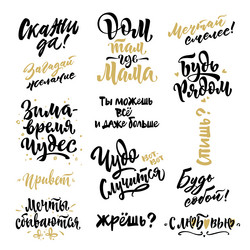 Скажи
да!
Загадай
желание
Зима-
время
чудес
Привет
Мечты
сбываются
Дом
там
где
Мама
Ты можешь
всё
и даже больше
Чудо
вот-вот
Случится
Жрёшь?
Мечтай
смелее!
Будь
рядом
Спишь?
Будь
собой!
С любовью